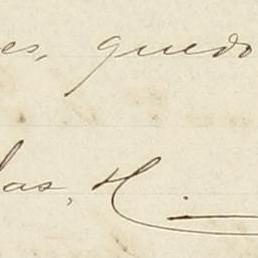 es, quedo
las, H.